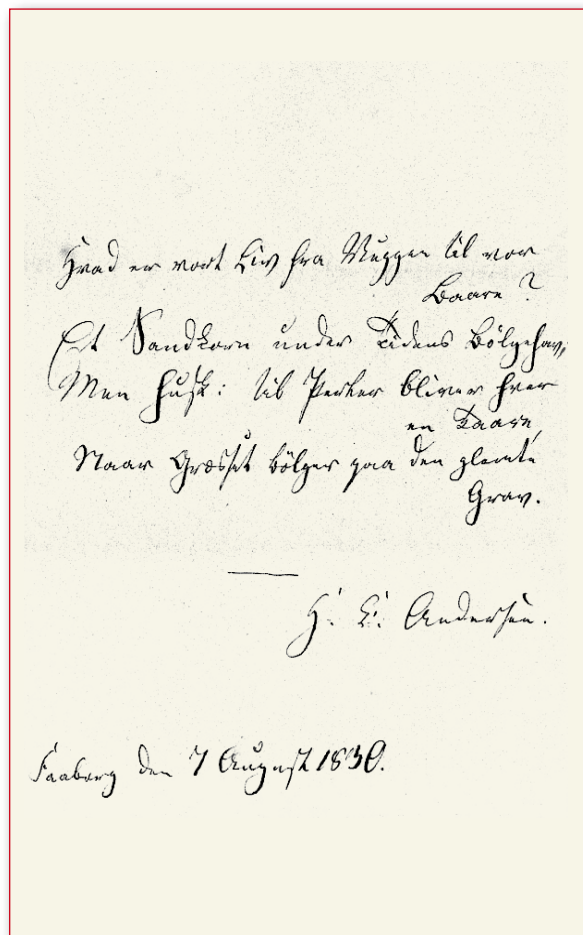 Hvad er vort Liv fra Vuggen til vor
Baare?
Et Sandkorn under Tidens Bölgehav,
Men husk: til Perler bliver hver
en Taare,
Naar Græsset bölger paa den glemte
Grav.
H. C. Andersen.
Faaborg den 7 August 1830.